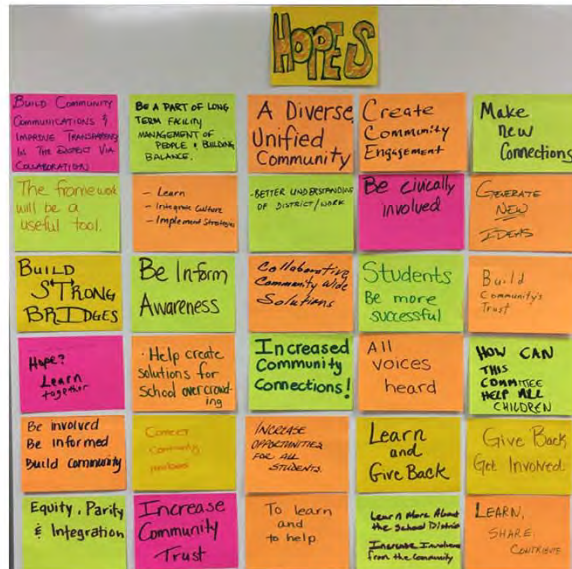 HOPES
BUILD COMMUNITY
COMMUNICATIONS &
IMPROVE TRANSPARENCY
IN THE DISTRICT VIA
COLLABORATION
BE A PART OF LONG
TERM FACILITY
MANAGEMENT OF
PEOPLE & BUILDING
BALANCE.
A Diverse,
Unified
Community
Create
Community
Engagement
Make
new
Connections
The framework
will be a
useful tool.
- Learn
- Integrate Culture
- Implement Strategies
-BETTER UNDERSTANDING
OF DISTRICT/WORK
Be civically
involved
GENERATE
NEW
IDEAS
BUILD
STRONG
BRIDGES
Be Inform
Awareness
Collaborative
Community Wide
Solutions
Students
Be more
successful
Build
Community's
Trust
Hope?
Learn
together
·Help create
solutions for
School overcrowd-
ing
Increased
Community
Connections!
All
voices
heard
HOW CAN
THIS
COMMITTEE
HELP ALL
CHILDREN
Be involved
Be informed
Build community
Connect
community
INCREASE
OPPORTUNITIES
FOR ALL
STUDENTS.
Learn
and
Give Back
Give Back,
Get Involved.
Equity, Parity
& Integration
Increase
Community
Trust
To learn
and
to help.
Learn More About
the School District
Increase
from the Community
LEARN,
SHARE,
CONTRIBUTE